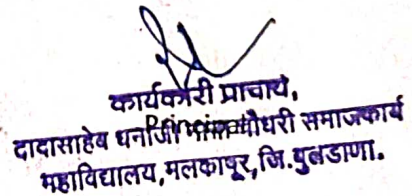 कार्यकारी प्राचार्य,
दादासाहेब धनाजी चौधरी समाजकार्य
महाविद्यालय, मलकापूर, जि. बुलडाणा.